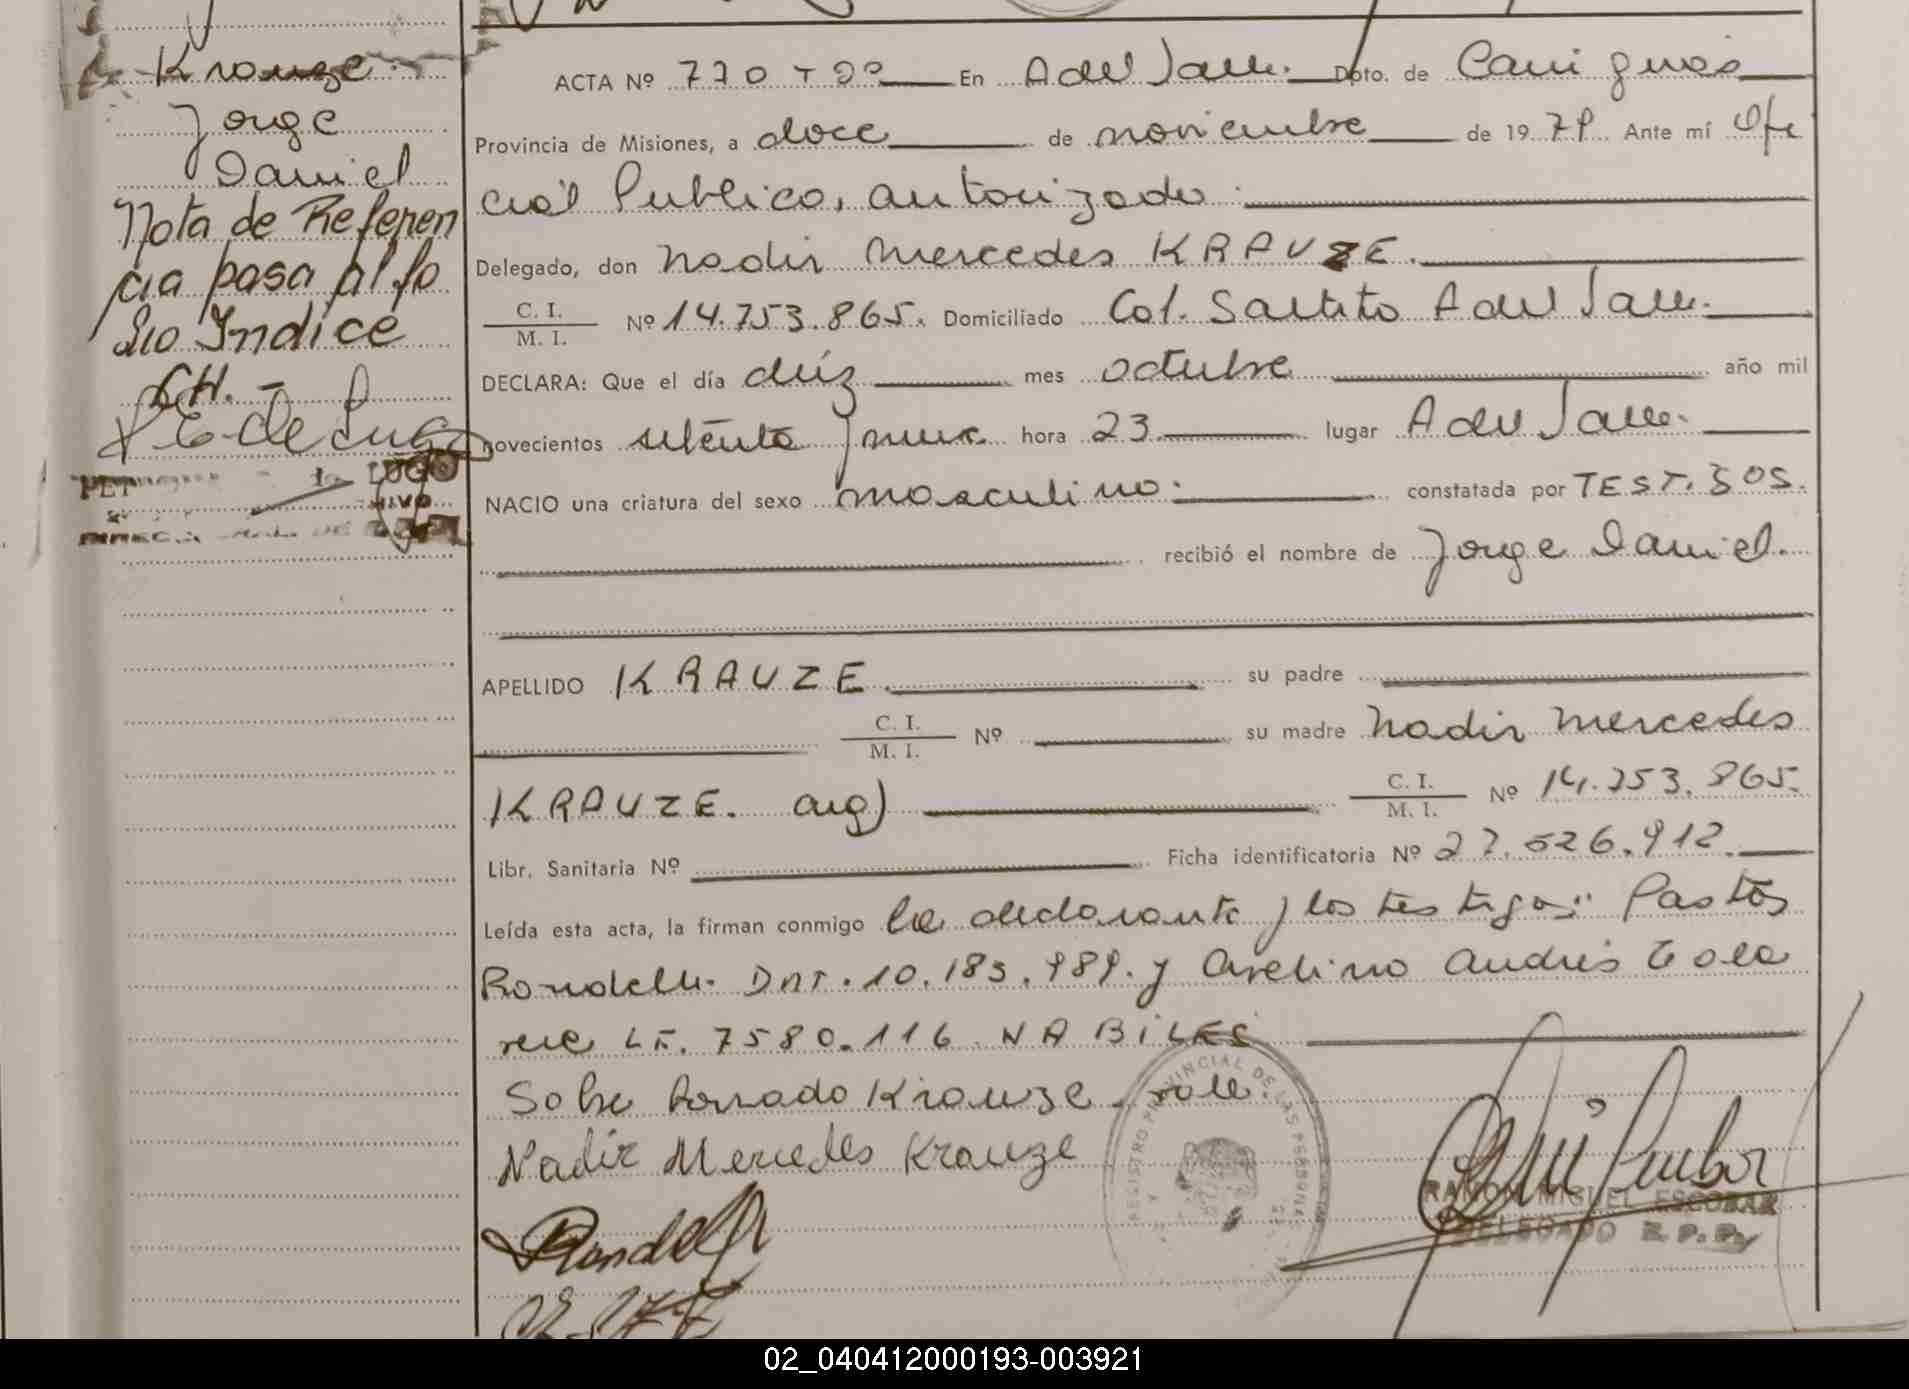 Krauze.
Jorge
Daniel
Nota de Referen
cia pasa al fo
lio Indice
CH. -
LUGO
ACTA Nº 770 En A del Valle. Dpto. de Cainguás
Provincia de Misiones, a doce de noviembre de 1979. Ante mí Ofi
cial Publico, autorizado.
Delegado, don Nadir Mercedes KRAUZE.
C. I.
M. I.
Nº 14.753.865. Domiciliado Col. Saltito A del Valle.
DECLARA: Que el día diéz mes octubre año mil
novecientos setenta y nueve hora 23 lugar A del Valle.
NACIO una criatura del sexo masculino. constatada por TEST. SOS.
recibió el nombre de Jorge Daniel.
APELLIDO KRAUZE. su padre
C. I.
M. I.
Nº su madre Nadir Mercedes
KRAUZE. arg)
C. I.
M. I.
Nº 14.753.865.
Libr. Sanitaria Nº Ficha identificatoria Nº 27.526.912.
Leída esta acta, la firman conmigo la declarante y los testigos: Pastor
Rondelli. DNI. 10.183.989. y Avelino Andrés
LE. 7580.116 HABILES
Sobre borrado Krauze. vale.
Nadir Mercedes Krauze
REGISTRO PROVINCIAL DE LAS PERSONAS
RAMON MIGUEL ESCOBAR
DELEGADO R. P. P.
02_040412000193-003921